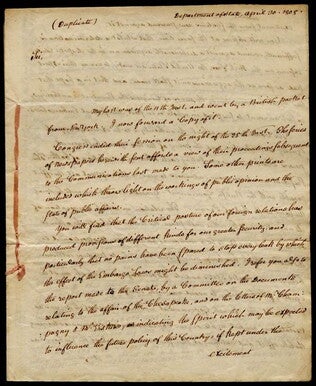 (Duplicate)
Department of State, April 30. 180
Sir,
My last was of the Inst. and went by a British packet
from New York. I now forward a Copy of it.
Congress ended their Session on the night of the 25th Inst. The series
of News Papers herewith sent affords a view of their proceedings subsequent
to the Communications last made to you. Some other prints are
included which throw light on the workings of public opinion and the
State of public affairs.
You will find that the Critical posture of our foreign relations has
produced provisions of different kinds for our greater security, and
particularly that no pains have been spared to stop every leak by which
the effect of the Embargo laws might be diminished. I refer you also to
the report made to the Senate by a Committee on the documents
relating to the affair of the Chesapeake, and on the letters of Mr. Cham-
pagny & Mr. Erskine, as indicating the spirit which may be expected
to influence the future policy of this Country, if kept under the
excitement